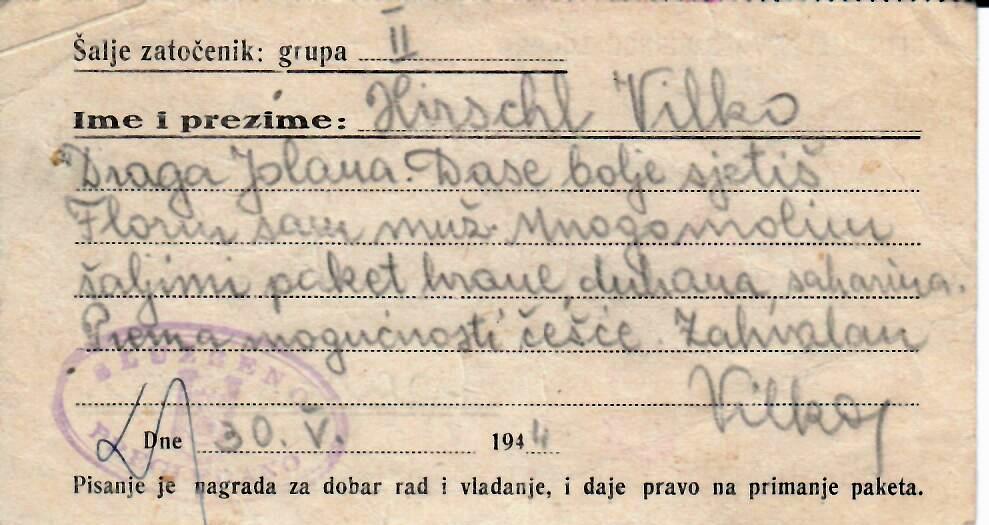 Šalje zatočenik: grupa II
Ime i prezime: Hirschl Vilko
Draga Jolana. Dase bolje sjetiš
Florin sam muž. Mnogo molim
šaljimi paket hrane, duhana, saharina.
Prema mogućnosti češće. Zahvalan
Vilko
SLUŽBENO
Dne 30. V. 1944
Pisanje je nagrada za dobar rad i vladanje, i daje pravo na primanje paketa.